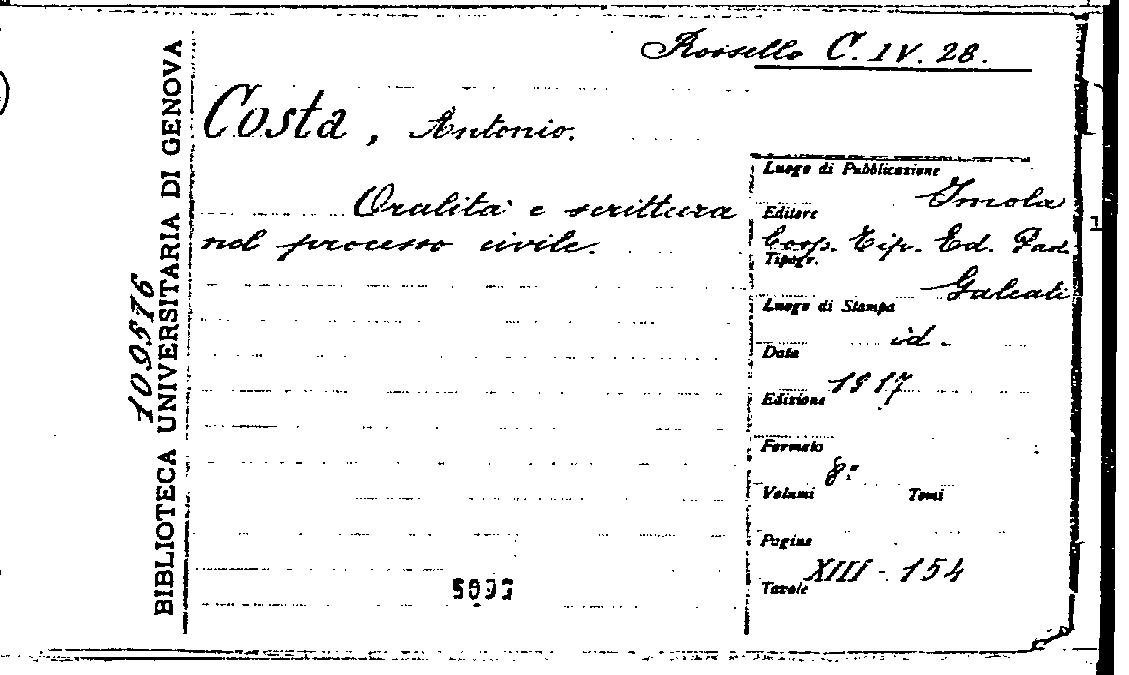 Rossello C. IV. 28.
Costa, Antonio.
Oralità e scrittura
nel processo civile.
BIBLIOTECA UNIVERSITARIA DI GENOVA
109576
Luogo di Pubblicazione
Imola
Editore
Coop. Tip. Ed. Paol.
Tipogr.
Galeati
Luogo di Stampa
id.
Data
1917
Edizione
Formato
8°
Volumi Tomi
Pagine
XIII - 154
Tavole